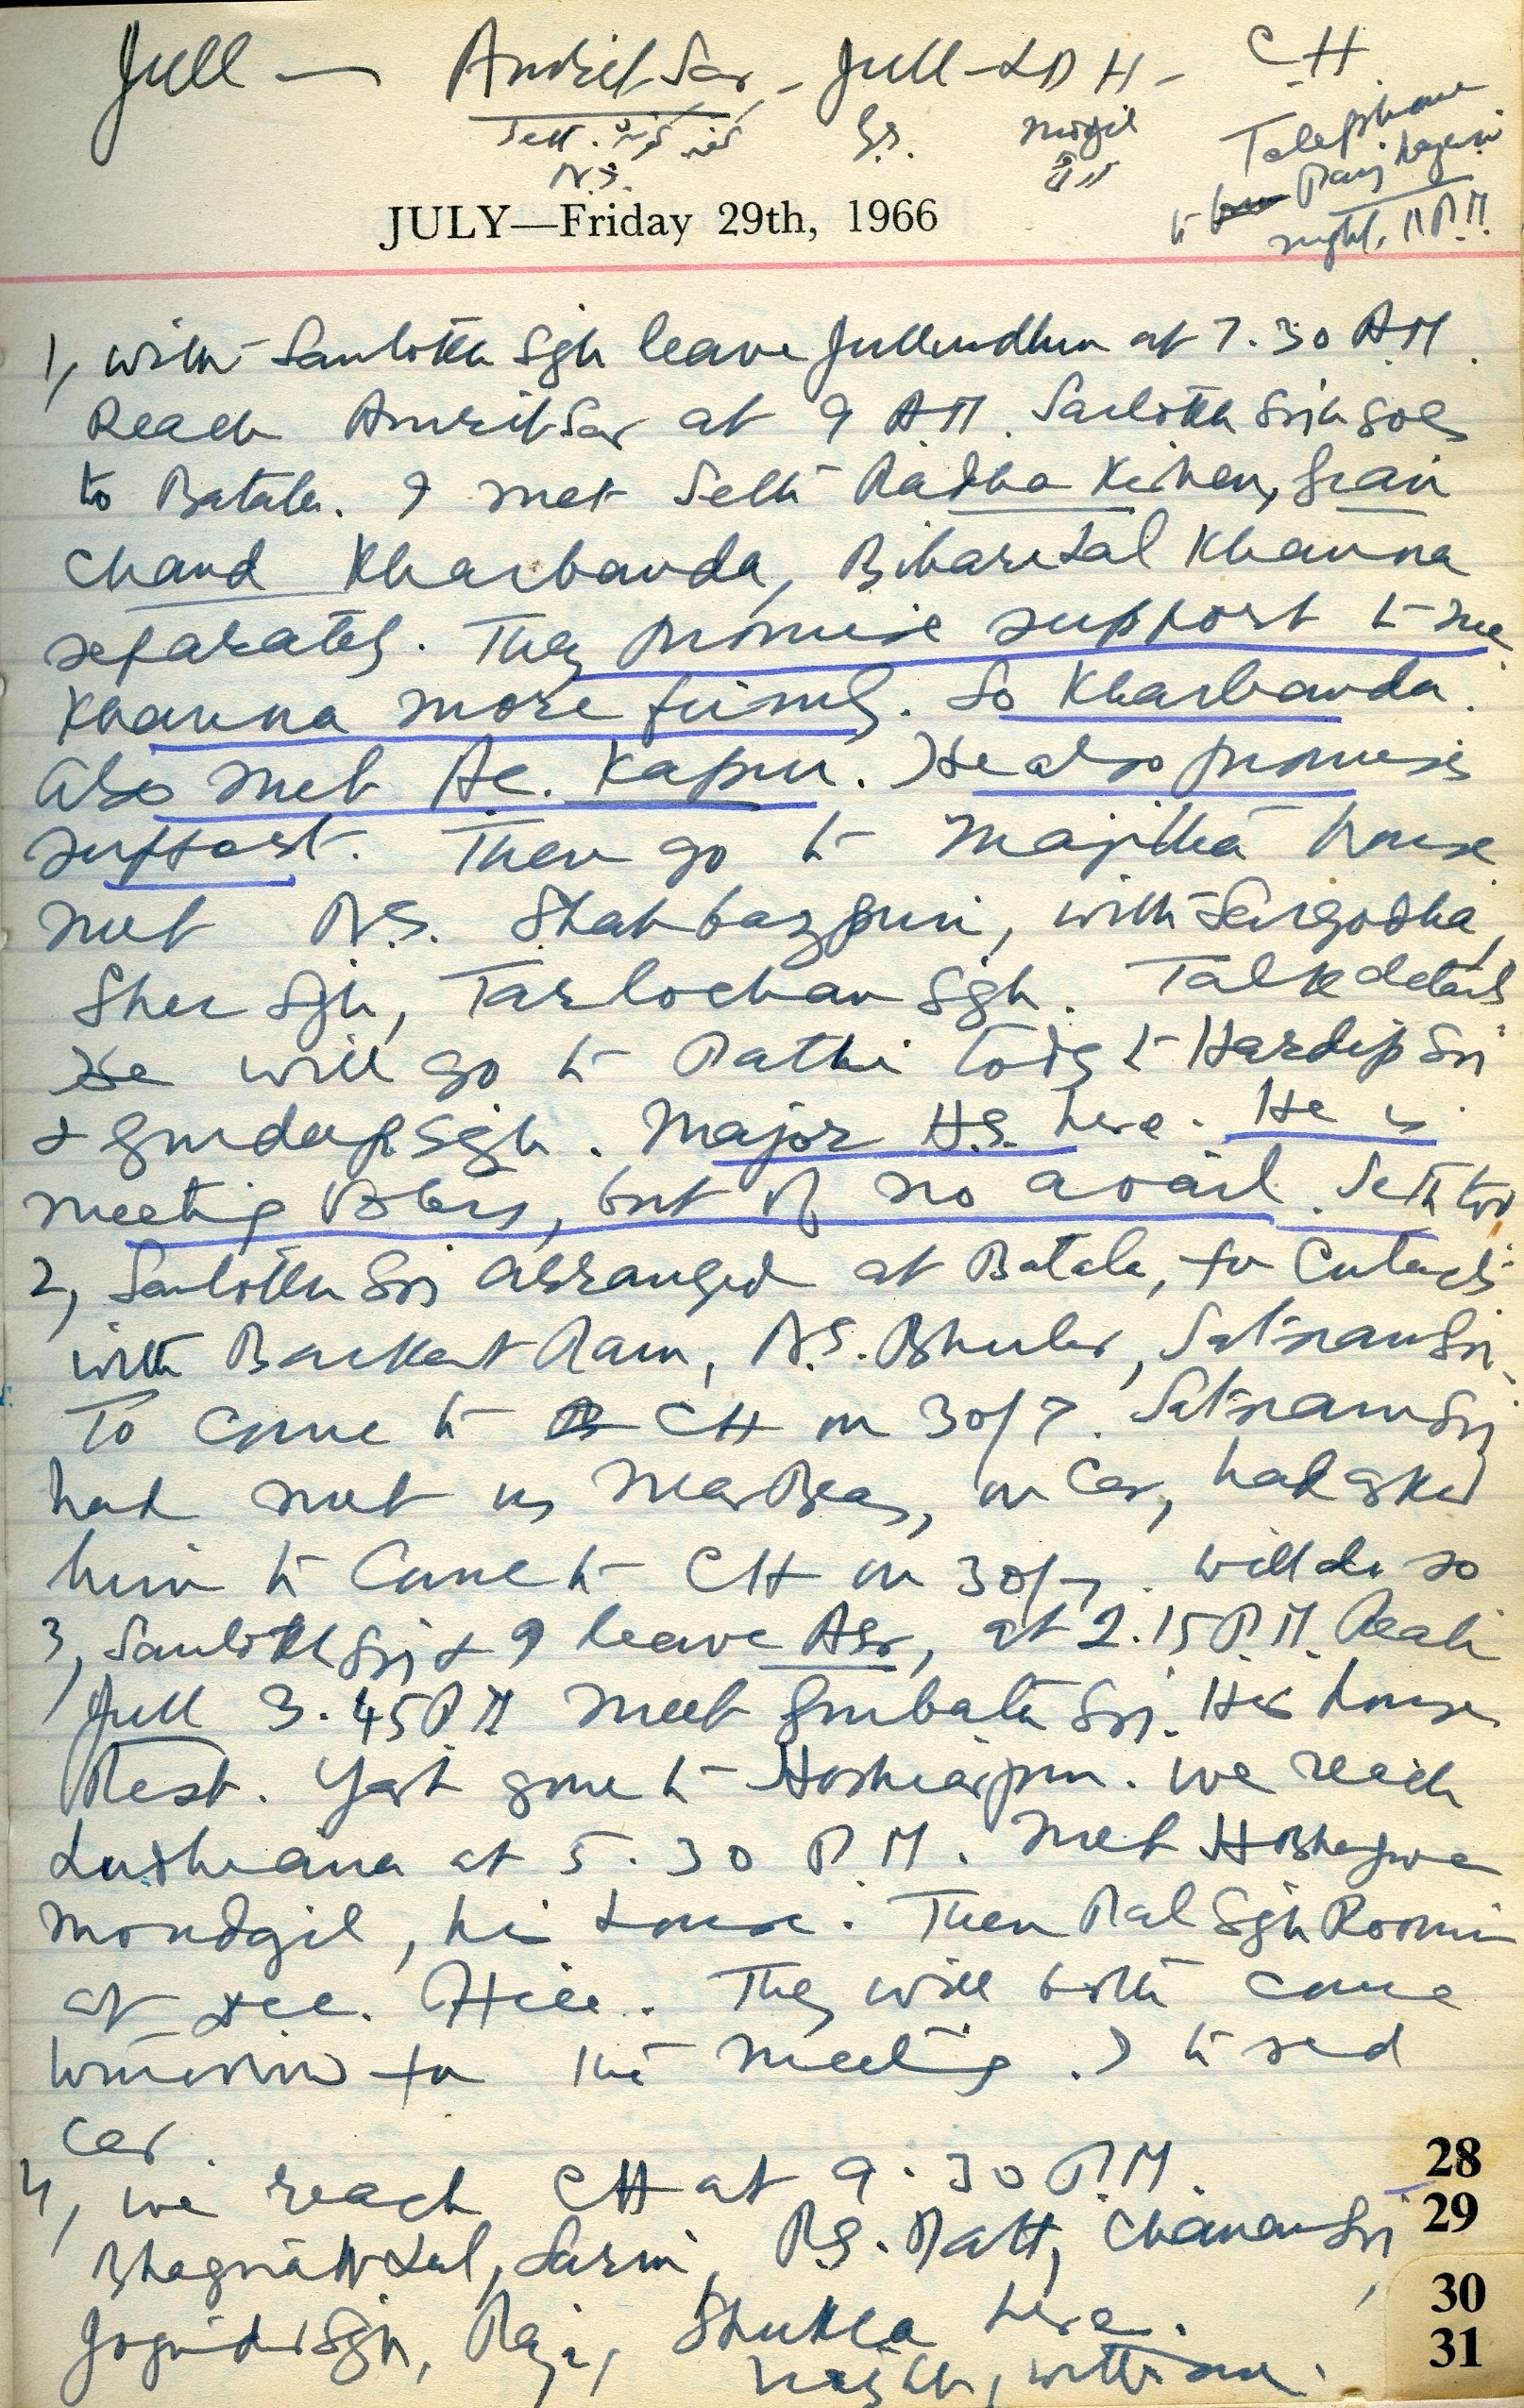 Jull — Amritsar - Jull - LDH - CH
Seth. G.S. Mogil Telephone
N.S.
JULY—Friday 29th, 1966
night, 11 P.M.
1, with Santokh Sgh leave Jullundhur at 7.30 AM.
Reach Amritsar at 9 AM. Santokh Singh goes
to Batala. I met Seth Radha Kishen, Gian
Chand Kharbanda, Biharilal Khanna
separately. They promise support to me
Khanna more firmly. So Kharbanda.
Also met Kapur. He also promises
support. Then go to Majitha house
met Shahbazpuri, with Sargodha,
Sher Sgh, Tarlochan Sgh. Talk details
He will go to Patti today to Hardip Sgh
& Gurdeep Sgh. Major H.S. here. He is
meeting voters, but of no avail. Seth too
2, Santokh Sgh arranged at Batala, for Contacts
with Barkat Ram, Satnam Sgh.
To come to CH on 30/7. Satnam Sgh
had met us near Beas, in Car, had asked
him to Come to CH on 30/7. will do so
3, Santokh Sgh & I leave Asr, at 2.15 P.M. Reach
Jull 3.45 PM meet Gurbanta Sgh. His house
Rest. Yash gone to Hoshiarpur. We reach
Ludhiana at 5.30 P.M. Met
Moudgil, his house. Then Pal Sgh Roomi
at They will both come
tomorrow for the meeting. I to send
car.
4, we reach CH at 9.30 P.M.
Lal, Chanan Sgh
Joginder Sgh, Shukla here.
28
29
30
31